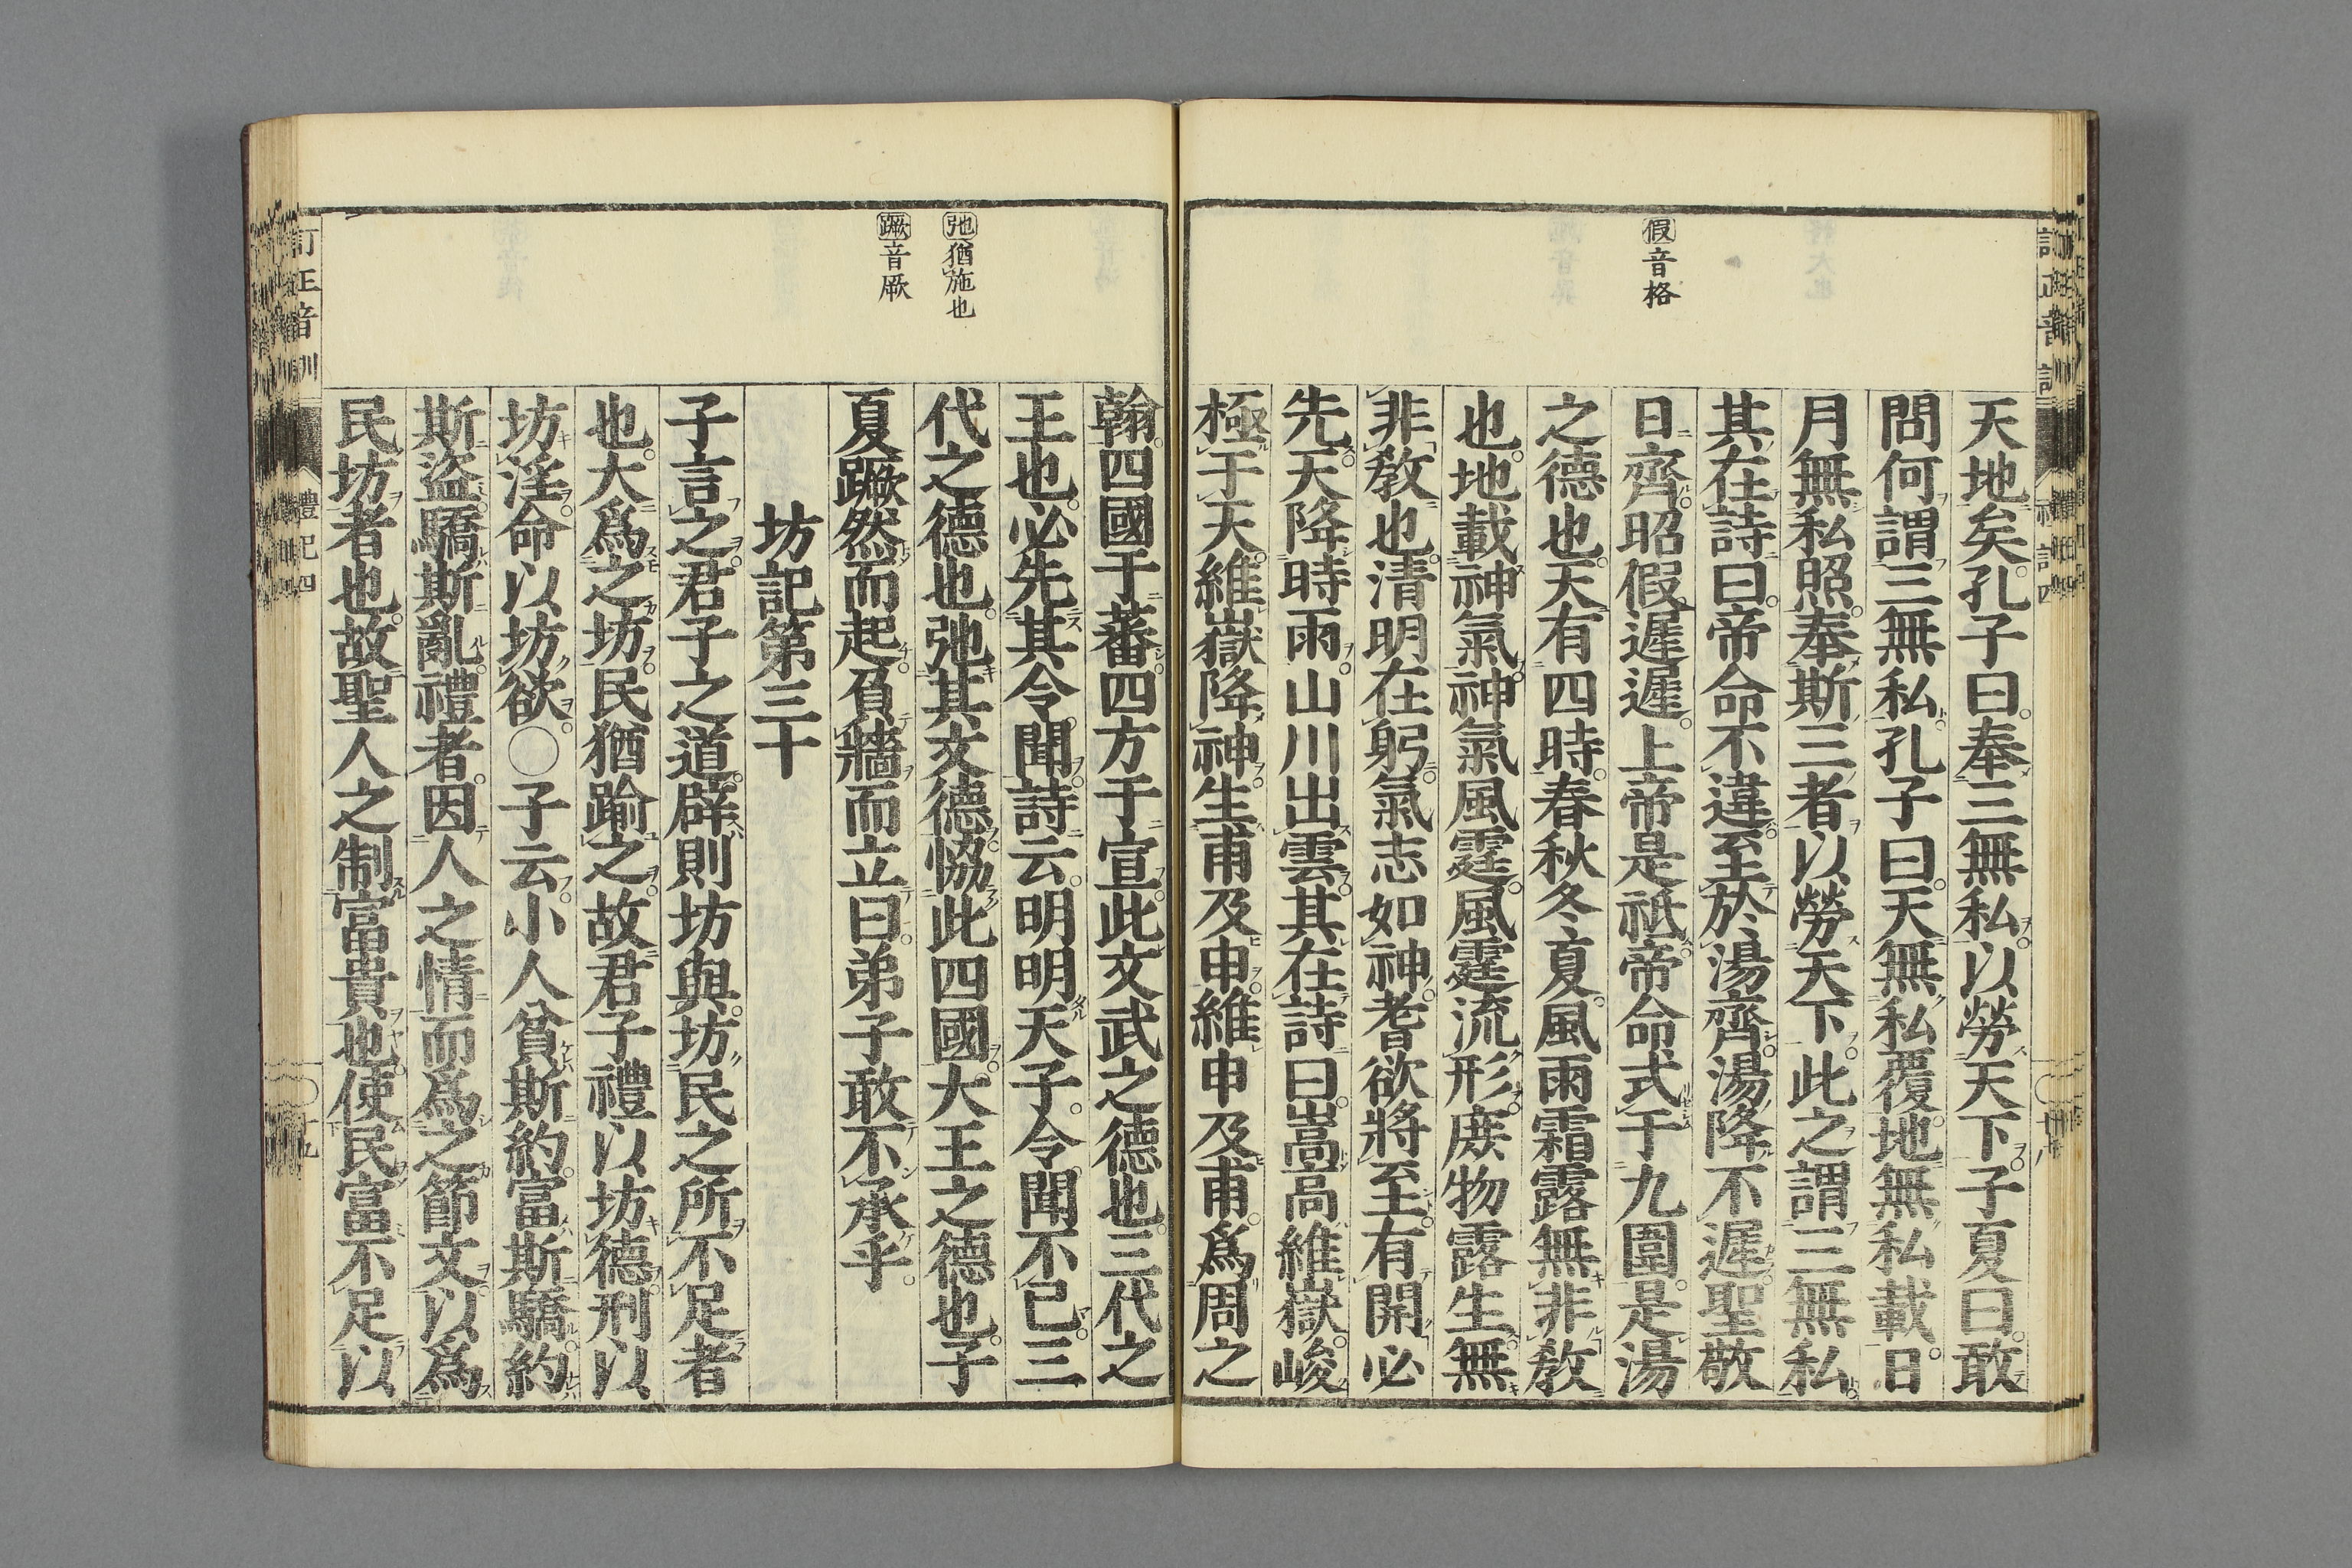 假音格
天地矣孔子曰奉三無私以勞天下子夏曰敢
問何謂三無私孔子曰天無私覆地無私載日
月無私照奉斯三者以勞天下此之謂三無私
其在詩曰帝命不違至於湯齊湯降不遲聖敬
日齊昭假遲遲上帝是祇帝命式于九圍是湯
之德也天有四時春秋冬夏風雨霜露無非敎
也地載神氣神氣風霆風霆流形庶物露生無
非敎也清明在躬氣志如神耆欲將至有開必
先天降時雨山川出雲其在詩曰嵩高維嶽峻
極于天維嶽降神生甫及申維申及甫爲周之
弛猶施也
蹶音厥
翰四國于蕃四方于宣此文武之德也三代之
王也必先其令聞詩云明明天子令聞不已三
代之德也弛其文德恊此四國大王之德也子
夏蹶然而起負牆而立曰弟子敢不承乎
坊記第三十
子言之君子之道辟則坊與坊民之所不足者
也大爲之坊民猶踰之故君子禮以坊德刑以
坊淫命以坊欲〇子云小人貧斯約富斯驕約
斯盜驕斯亂禮者因人之情而爲之節文以爲
民坊者也故聖人之制富貴也使民富不足以
訂正音訓
禮記四